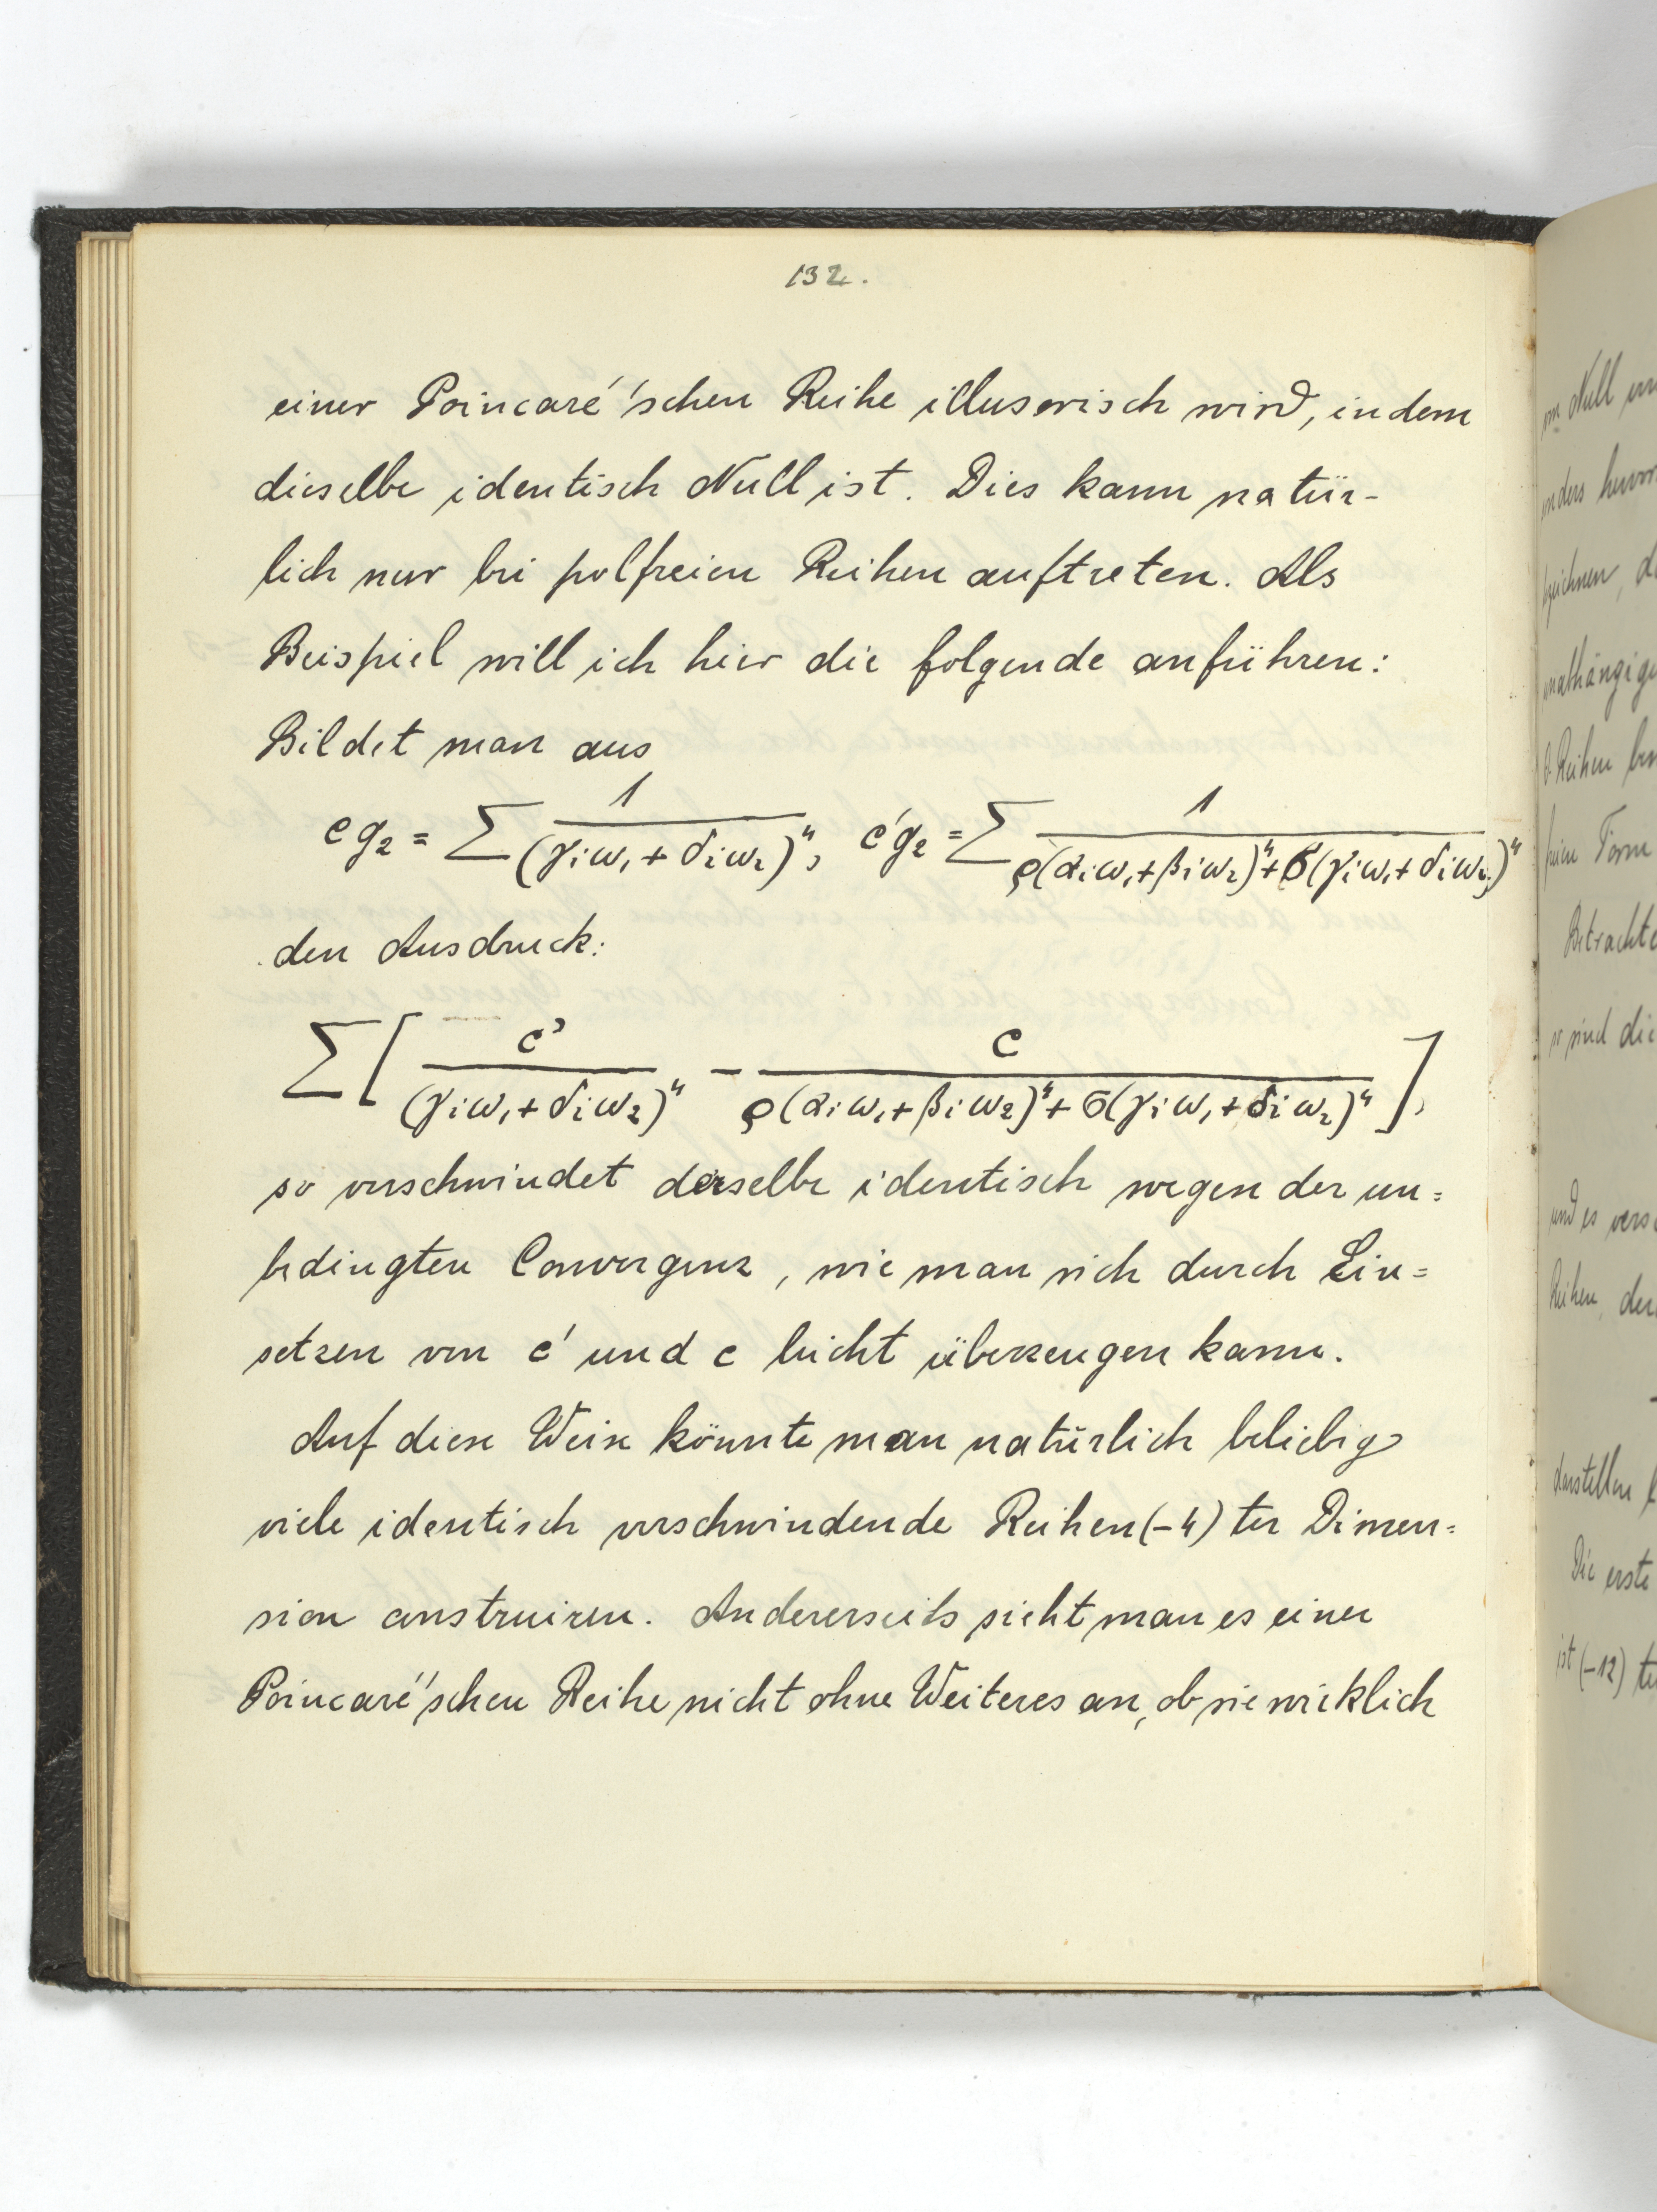 132.
einer Poincaré'schen Reihe illusorisch wird, indem
dieselbe identisch Null ist. Dies kann natür-
lich nur bei polfreien Reihen auftreten. Als
Beispiel will ich hier die folgende anführen:
Bildet man aus
c g₂ = Σ 1/(γᵢω₁ + δᵢω₂)⁴, c'g₂ = Σ 1/ρ(αᵢω₁+βᵢω₂)⁴+σ(γᵢω₁+δᵢω₂)⁴
den Ausdruck:
Σ[ c'/(γᵢω₁+δᵢω₂)⁴ - c/ρ(αᵢω₁+βᵢω₂)⁴+σ(γᵢω₁+δᵢω₂)⁴ ],
so verschwindet derselbe identisch wegen der un=
bedingten Convergenz, wie man sich durch Ein=
setzen von c' und c leicht überzeugen kann.
Auf diese Weise könnte man natürlich beliebig
viele identisch verschwindende Reihen (-4) ter Dimen=
sion construiren. Andererseits sieht man es einer
Poincaré'schen Reihe nicht ohne Weiteres an, ob sie wirklich
Null
anders
unabhängige
Reihen
Form
Betrachte
sind die
und es
Reihen, der
darstellen
Die erste
ist (-12) te